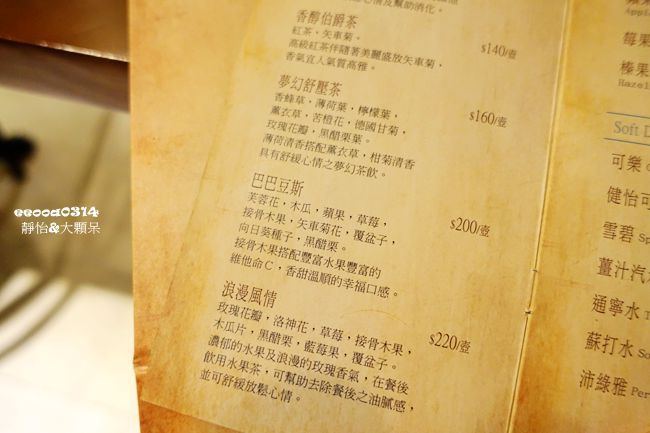 香醇伯爵茶
紅茶，矢車菊。
高級紅茶伴隨著美麗盛放矢車菊，
香氣宜人氣質高雅。
$140/壺
夢幻舒壓茶
香蜂草，薄荷葉，檸檬葉，
薰衣草，苦橙花，德國甘菊，
玫瑰花瓣，黑醋栗葉。
薄荷清香搭配薰衣草，柑菊清香
具有舒緩心情之夢幻茶飲。
$160/壺
巴巴豆斯
芙蓉花，木瓜，蘋果，草莓，
接骨木果，矢車菊花，覆盆子，
向日葵種子，黑醋栗。
接骨木果搭配豐富水果豐富的
維他命C，香甜溫順的幸福口感。
$200/壺
浪漫風情
玫瑰花瓣，洛神花，草莓，接骨木果，
木瓜片，黑醋栗，藍莓果，覆盆子。
濃郁的水果及浪漫的玫瑰香氣，在餐後
飲用水果茶，可幫助去除餐後之油膩感，
並可舒緩放鬆心情。
$220/壺
莓果
榛果
Hazel
Soft D
可樂
健怡可
雪碧 Sp
薑汁汽
通寧水
蘇打水 So
沛綠雅 Per
eeooa0314
靜怡&大顆呆